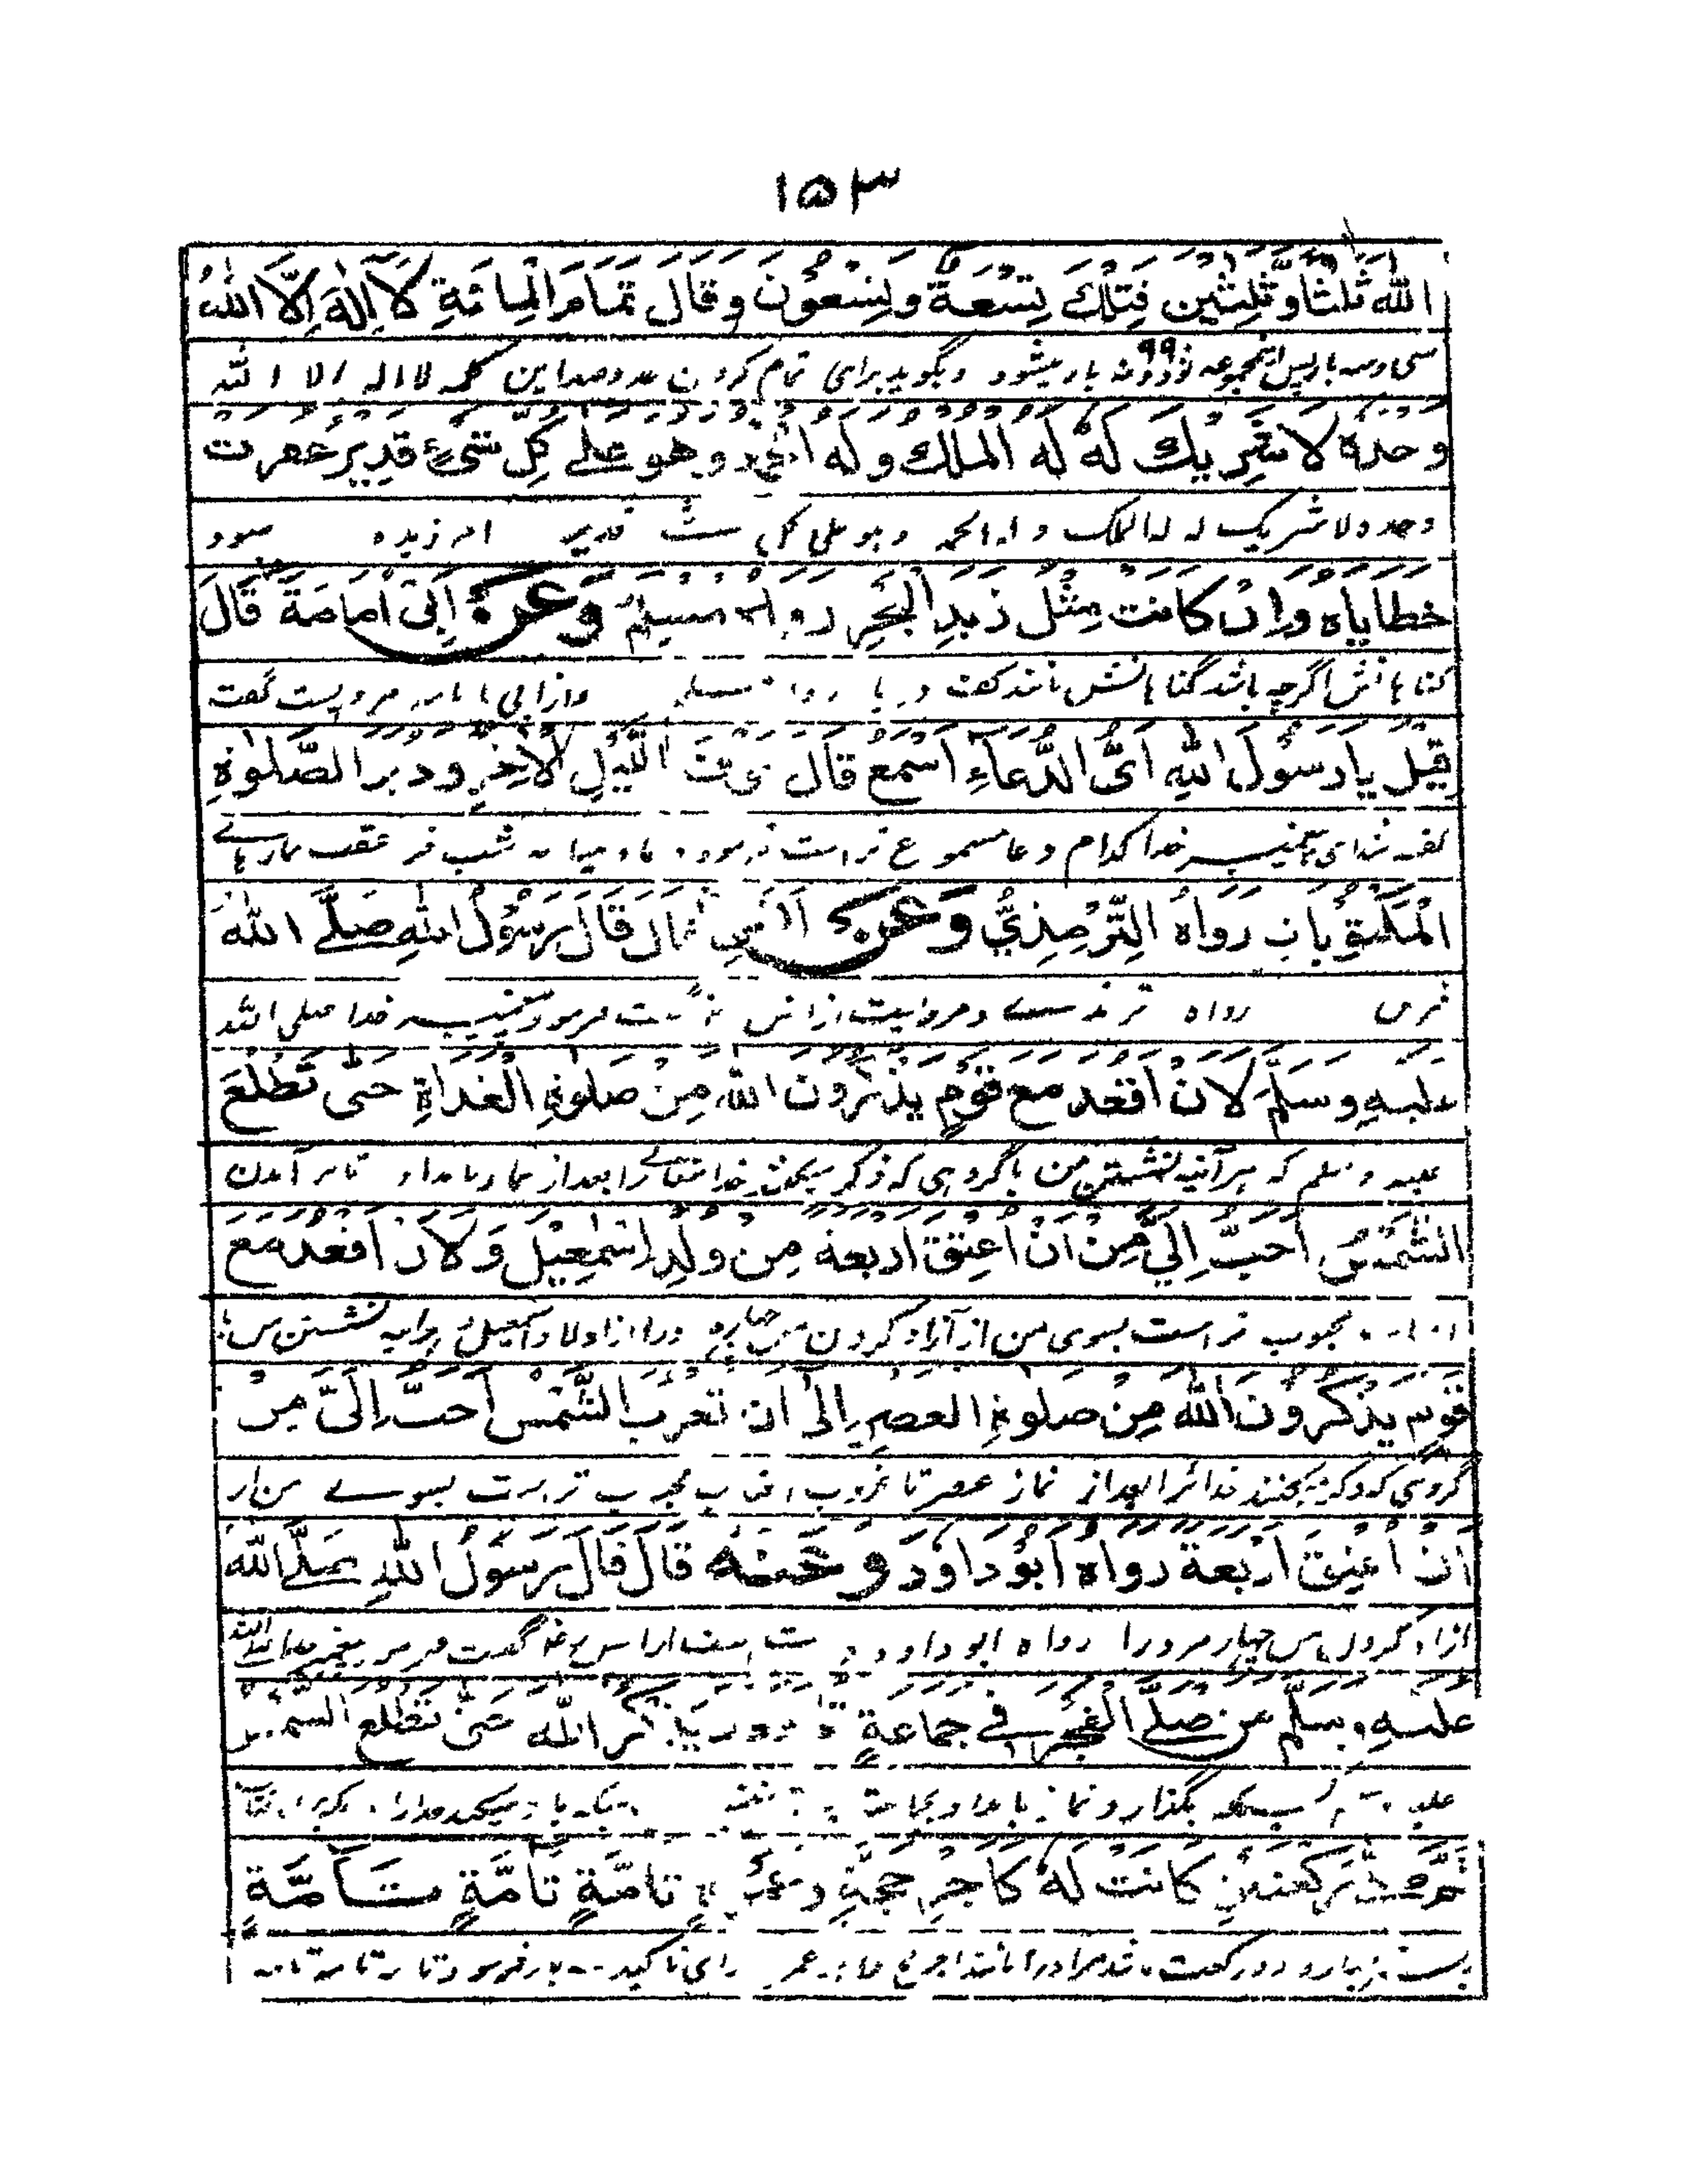 ۱۵۳
اللّٰهَ ثَلٰثًا وَّثَلٰثِيْنَ فَتِلْكَ تِسْعَةٌ وَتِسْعُوْنَ وَقَالَ تَمَامَ الْمِائَةِ لَآ اِلٰهَ اِلَّا اللّٰهُ
سی وسه بار پس اینمجموعه نودونه ۹۹ بار میشود و بگوید برای تمام کردن عدد صد این کلمه لا اله الا الله
وَحْدَهٗ لَا شَرِيْكَ لَهٗ لَهُ الْمُلْكُ وَلَهُ الْحَمْدُ وَهُوَ عَلٰى كُلِّ شَيْءٍ قَدِيْرٌ غُفِرَتْ
وحده لا شریک له له الملک و له الحمد و هو علی کل شئ قدیر امرزیده میشود
خَطَايَاهُ وَاِنْ كَانَتْ مِثْلَ زَبَدِ الْبَحْرِ رَوَاهُ مُسْلِمٌ وَعَنْ اَبِيْ اُمَامَةَ قَالَ
گناهانش اگرچه باشد گناهانش مانند کف دریا رواه مسلم و از ابی امامه مرویست گفت
قِيْلَ يَا رَسُوْلَ اللّٰهِ اَيُّ الدُّعَآءِ اَسْمَعُ قَالَ جَوْفَ اللَّيْلِ الْاٰخِرِ وَدُبُرَ الصَّلَوٰةِ
گفته شد ای پیغمبر خدا کدام دعا مسموع تر است فرمود دعا میانه شب عقب نمازهای
الْمَكْتُوْبَاتِ رَوَاهُ التِّرْمِذِيُّ وَعَنْ اَنَسٍ قَالَ قَالَ رَسُوْلُ اللّٰهِ صَلَّى اللّٰهُ
فرض رواه ترمذی و مرویست از انس گفت فرمود پیغمبر خدا صلی الله
عَلَيْهِ وَسَلَّمَ لَاَنْ اَقْعُدَ مَعَ قَوْمٍ يَذْكُرُوْنَ اللّٰهَ مِنْ صَلٰوةِ الْغَدَاةِ حَتّٰى تَطْلُعَ
علیه وسلم که هرآئینه نشستن من با گروهی که ذکر میکنند خدا تعالی را بعد از نماز بامداد تا برآمدن
الشَّمْسُ اَحَبُّ اِلَيَّ مِنْ اَنْ اُعْتِقَ اَرْبَعَةً مِنْ وُلْدِ اِسْمٰعِيْلَ وَلَاَنْ اَقْعُدَ مَعَ
محبوب تر است بسوی من از آزاد کردن من چهار از اولاد اسمعیل نشستن من با
قَوْمٍ يَذْكُرُوْنَ اللّٰهَ مِنْ صَلٰوةِ الْعَصْرِ اِلٰى اَنْ تَغْرُبَ الشَّمْسُ اَحَبُّ اِلَيَّ مِنْ
گروهی که ذکر میکنند خدا را بعد از نماز عصر تا غروب افتاب محبوب تر است بسوی من از
اَنْ اُعْتِقَ اَرْبَعَةً رَوَاهُ اَبُوْ دَاوُدَ وَعَنْهُ قَالَ قَالَ رَسُوْلُ اللّٰهِ صَلَّى اللّٰهُ
ازاد کردن من چهار مرد را رواه ابو داود گفت پیغمبر
عَلَيْهِ وَسَلَّمَ مَنْ صَلَّى الْفَجْرَ فِي جَمَاعَةٍ يَذْكُرُ اللّٰهَ حَتّٰى تَطْلُعَ الشَّمْسُ
بگذارد نماز بامداد بجماعت
ثُمَّ صَلَّى رَكْعَتَيْنِ كَانَتْ لَهٗ كَاَجْرِ حَجَّةٍ وَعُمْرَةٍ تَامَّةٍ تَامَّةٍ تَامَّةٍ
دو رکعت باشد مراورا مانند اجر حج برای تاکید بار فرمود تامة تامة